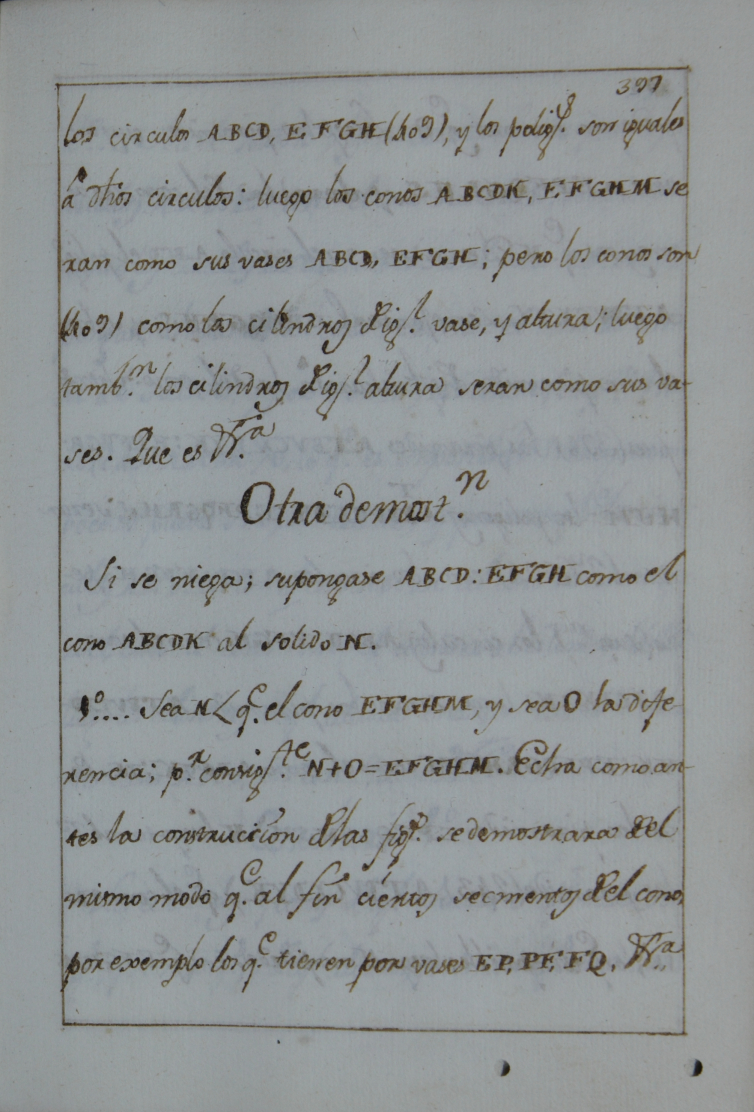 397
los circulos ABCD, EFGH (409), y los polig.s son iguales
á dhos circulos: luego los conos ABCDK, EFGHM se
ran como sus vases ABCD, EFGH; pero los conos son
(409) como los cilindros de ig.l vase, y altura; luego
tamb.n los cilindros de ig.l altura seran como sus va-
ses. Que es &.a
Otra demost.n
Si se niega; supongase ABCD: EFGH como el
cono ABCDK al solido N.
1º.... Sea N < q.e el cono EFGHM, y sea O la dife-
rencia; p.r consig.te N+O=EFGHM. Echa como an-
tes la construcción de las fig.s se demostrara del
mismo modo q.e al fin ciertos secmentos del cono,
por exemplo los q.e tienen por vases EP, PF, FQ, &.a